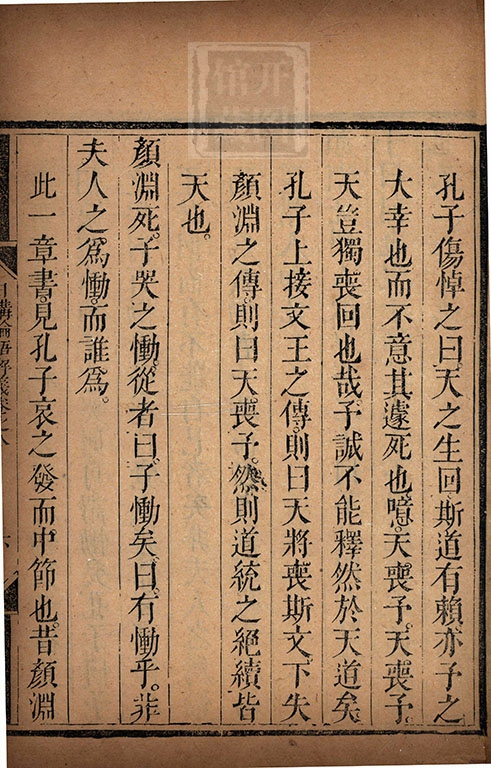 孔子傷悼之曰天之生回斯道有賴亦予之
大幸也而不意其遽死也噫天喪予天喪予
天豈獨喪回也哉予誠不能釋然於天道矣
孔子上接文王之傳則曰天將喪斯文下失
顏淵之傳則曰天喪予然則道統之絕續皆
天也
顏淵死子哭之慟從者曰子慟矣曰有慟乎非
夫人之為慟而誰為
此一章書見孔子哀之發而中節也昔顏淵
日講論語解義卷之八